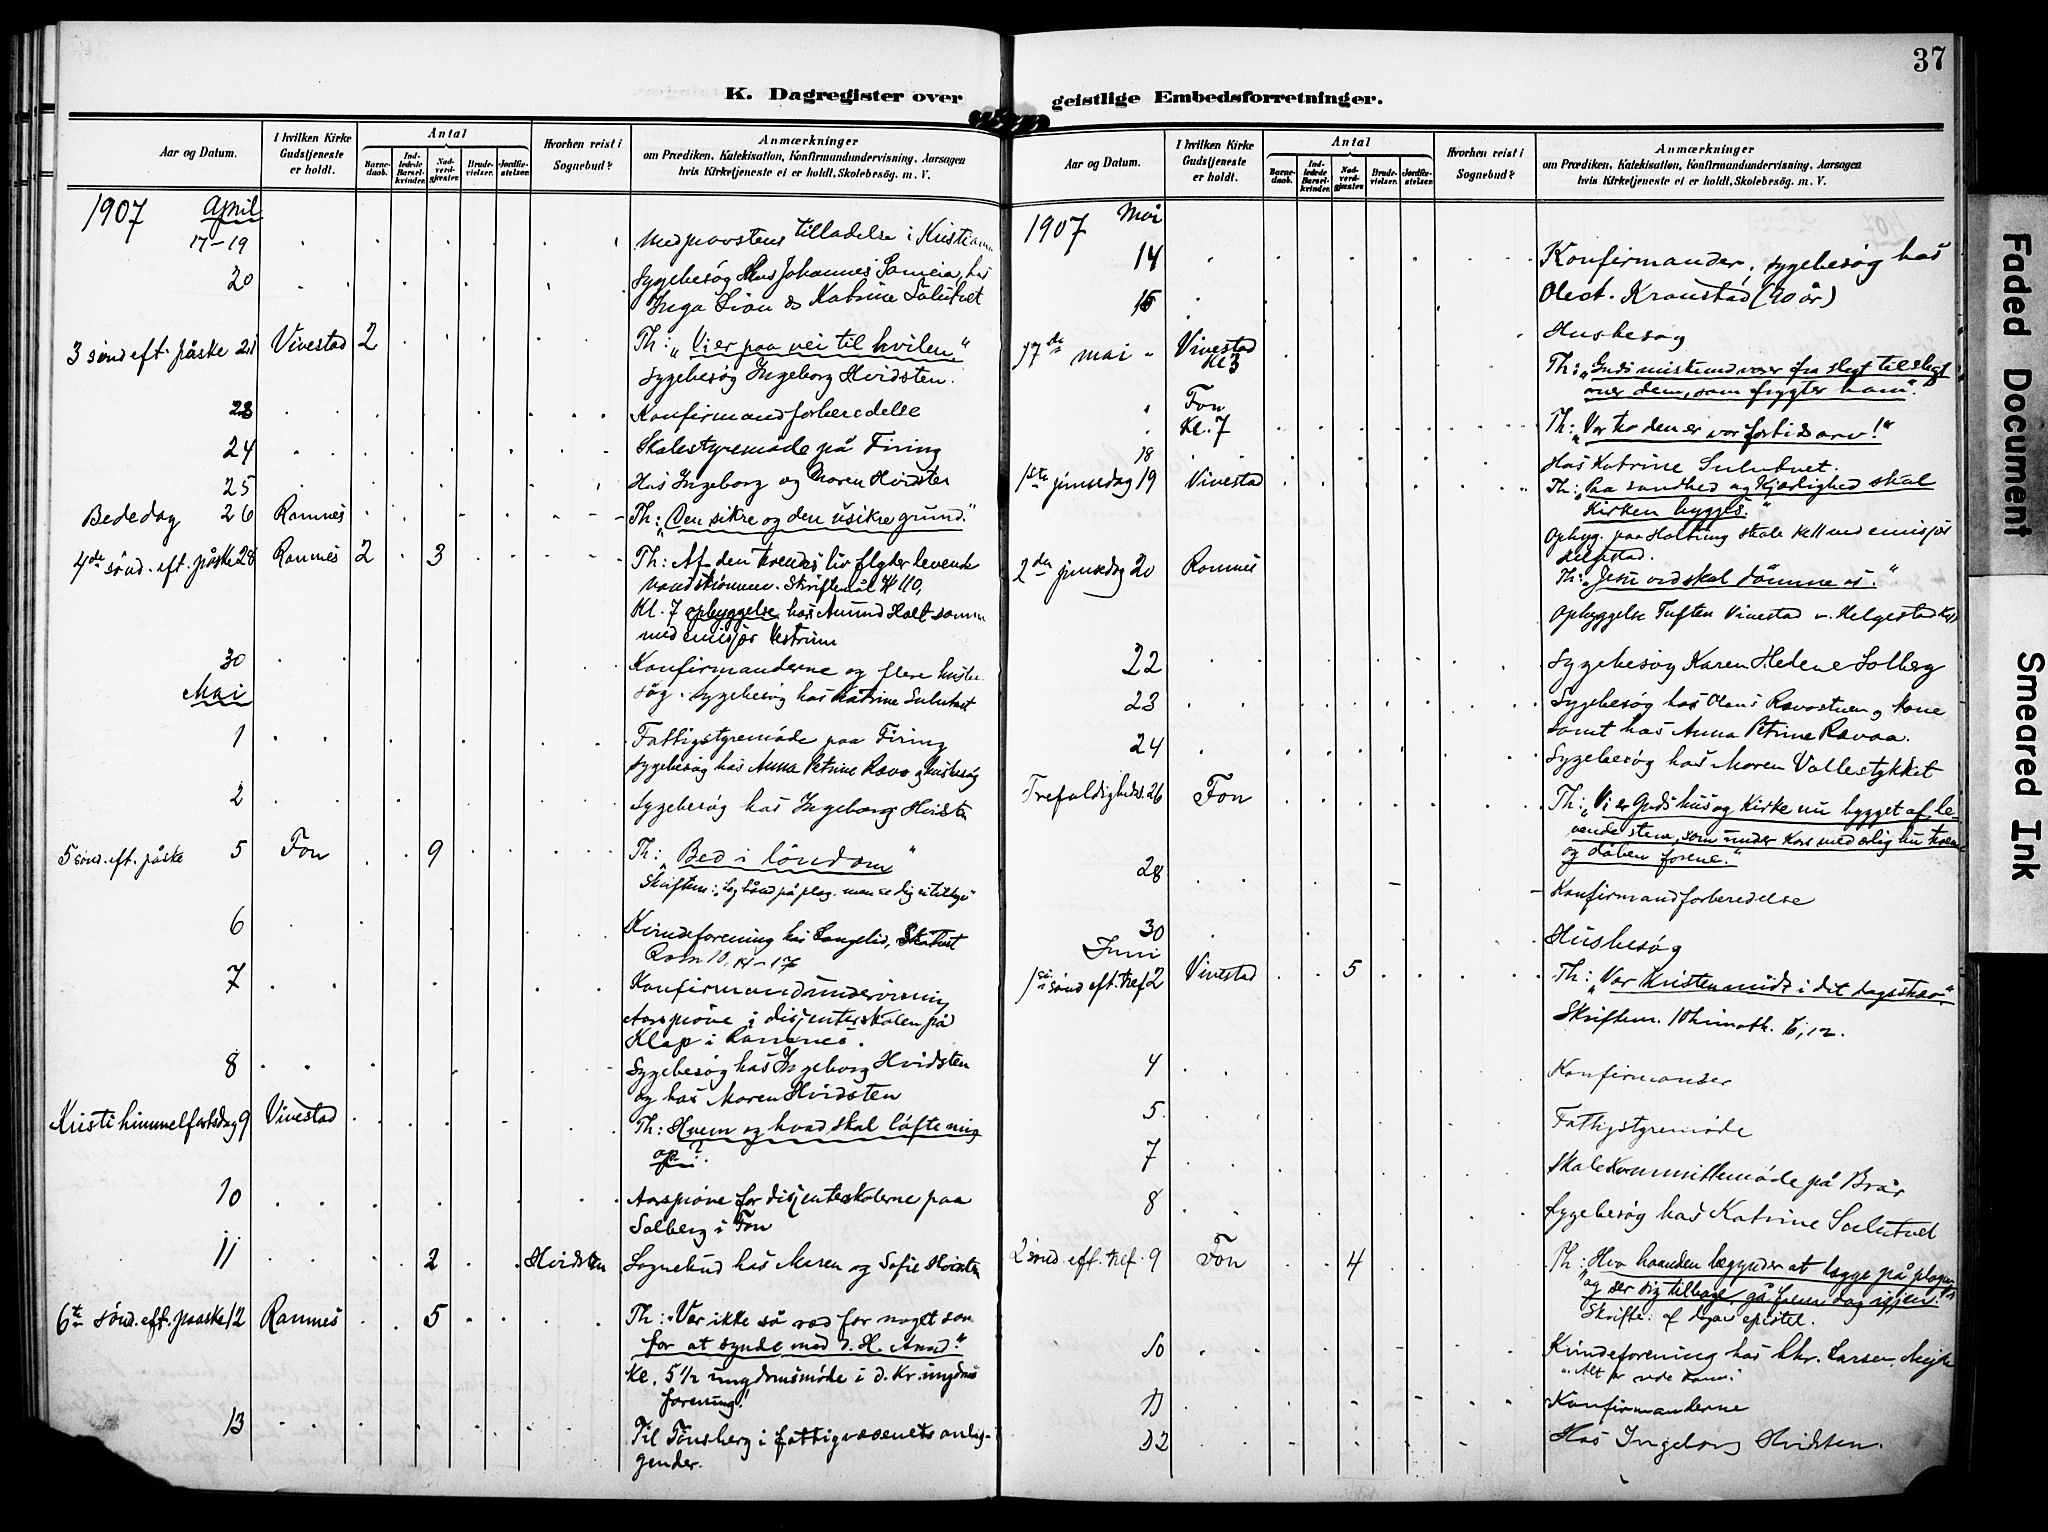 37
K. Dagregister over geistlige Embedsforretninger.
Aar og Datum.
I hvilken Kirke Gudstjeneste er holdt.
Antal
Barnedaab.
Indledede Barselkvinder.
Nadverdgjester.
Brudevielser.
Jordfæstelser.
Hvorhen reist i Sognebud?
Anmærkninger
om Prædiken, Katekisation, Konfirmandundervisning, Aarsagen
hvis Kirketjeneste ei er holdt, Skolebesøg. m. V.
1907 April
17-19 Med provstens tilladelse i
20 Sygebesøg hos Johannes
Inga Lian & Katrine
3 sønd eft. påske 21 Vivestad 2 Th: "Vi er paa vei til hvilen."
Sygebesøg Ingeborg Hvidsten.
23 Konfirmandforberedelse
24 Skolestyremøde på Firing
25 Hos Ingeborg og Maren Hvidsten
Bededag 26 Ramnes Th: "Den sikre og den usikre grund."
4de sønd. eft. påske 28 Ramnes 2 3 Th: Af den troendes liv flyder levende
vandstrømme. Skriftemål
Kl. 7 opbyggelse hos Amund Holt samm
med emisjær Vestrum
30 Konfirmanderne og flere husbe-
søg. Sygebesøg hos Katrine
Mai
1 Fattigstyremøde paa Firing
Sygebesøg hos Anna Petrine Ravo og husbesøg
2 Sygebesøg hos Ingeborg Hvidsten
5 sønd. eft. påske 5 Fon 9 Th: "Bed i løndom"
Skriftem:
6 Kvindeforening hos
Rom 10, 14-17
7 Konfirmandundervisning
Aarsprøve i disjenterskolen på
Klap i Ramnes.
8 Sygebesøg hos Ingeborg Hvidsten
og hos Maren Hvidsten
Kristi himmelfartsdag 9 Vivestad Th: Hvem og hvad skal løfte mig
op?
10 Aarsprøve for disjenteskolerne paa
Solberg i Fon
11 2 Hvidsten Sognebud hos Maren og Sofie Hvidsten
6te sønd. eft. paaske 12 Ramnes 5 Th: "Vær ikke så ræd for noget som
for at synde mod d. H. Aand."
Kl. 5 1/2 ungdomsmøde i d. Kr. ungdoms
forening!
13 Til Tønsberg i fattigvæsenets anlig-
gender.
Aar og Datum.
I hvilken Kirke Gudstjeneste er holdt.
Antal
Barnedaab.
Indledede Barselkvinder.
Nadverdgjester.
Brudevielser.
Jordfæstelser.
Hvorhen reist i Sognebud?
Anmærkninger
om Prædiken, Katekisation, Konfirmandundervisning, Aarsagen
hvis Kirketjeneste ei er holdt, Skolebesøg. m. V.
1907 Mai
14 Konfirmander, sygebesøg hos
Kronstad (90 år)
15 Husbesøg
17de mai Vivestad
Kl 3 Th: "Guds miskund varer fra slegt til slegt
over dem, som frygter ham."
Fon
Kl. 7 Th: "Vor tro den er vor fortids arv!"
18 Hos Katrine
1ste pinsedag 19 Vivestad Th: "Paa sandhed og kjærlighed skal
Kirken bygges."
Opbyg. paa skole Kl 1 med emisjær
Helgestad.
2den pinsedag 20 Ramnes Th: "Jesu ord skal dømme os."
Opbyggelse Tuften Vivestad v. Helgestad
22 Sygebesøg Karen Helene Solberg
23 Sygebesøg hos Olaus Ravastuen og kone
samt hos Anna Petrine Ravaa.
24 Sygebesøg hos Maren Vallestykket
Trefoldigheds. 26 Fon Th: "Vi er Guds hus og Kirke nu bygget af le-
vende stene, som under kors med ærlig hu troen
og dåben forene."
28 Konfirmandforberedelse
30 Husbesøg
Juni
1ste sønd eft. tref 2 Vivestad 5 Th: "Vor Kristen
Skriftem. 1 Timoth. 6, 12.
4 Konfirmander
5 Fattigstyremøde
7 Skolekommittemøde på Brår
8 Sygebesøg hos Katrine
2 sønd. eft. tref. 9 Fon 4 Th: "Hvo haanden begynder at lægge på plogen
og ser sig tilbage, gå frem dog igjen."
Skrifte. af dagens epistel.
10 Kvindeforening hos Chr. Larsen
11 Konfirmanderne
12 Hos Ingeborg Hvidsten.
Faded Document
Smeared Ink